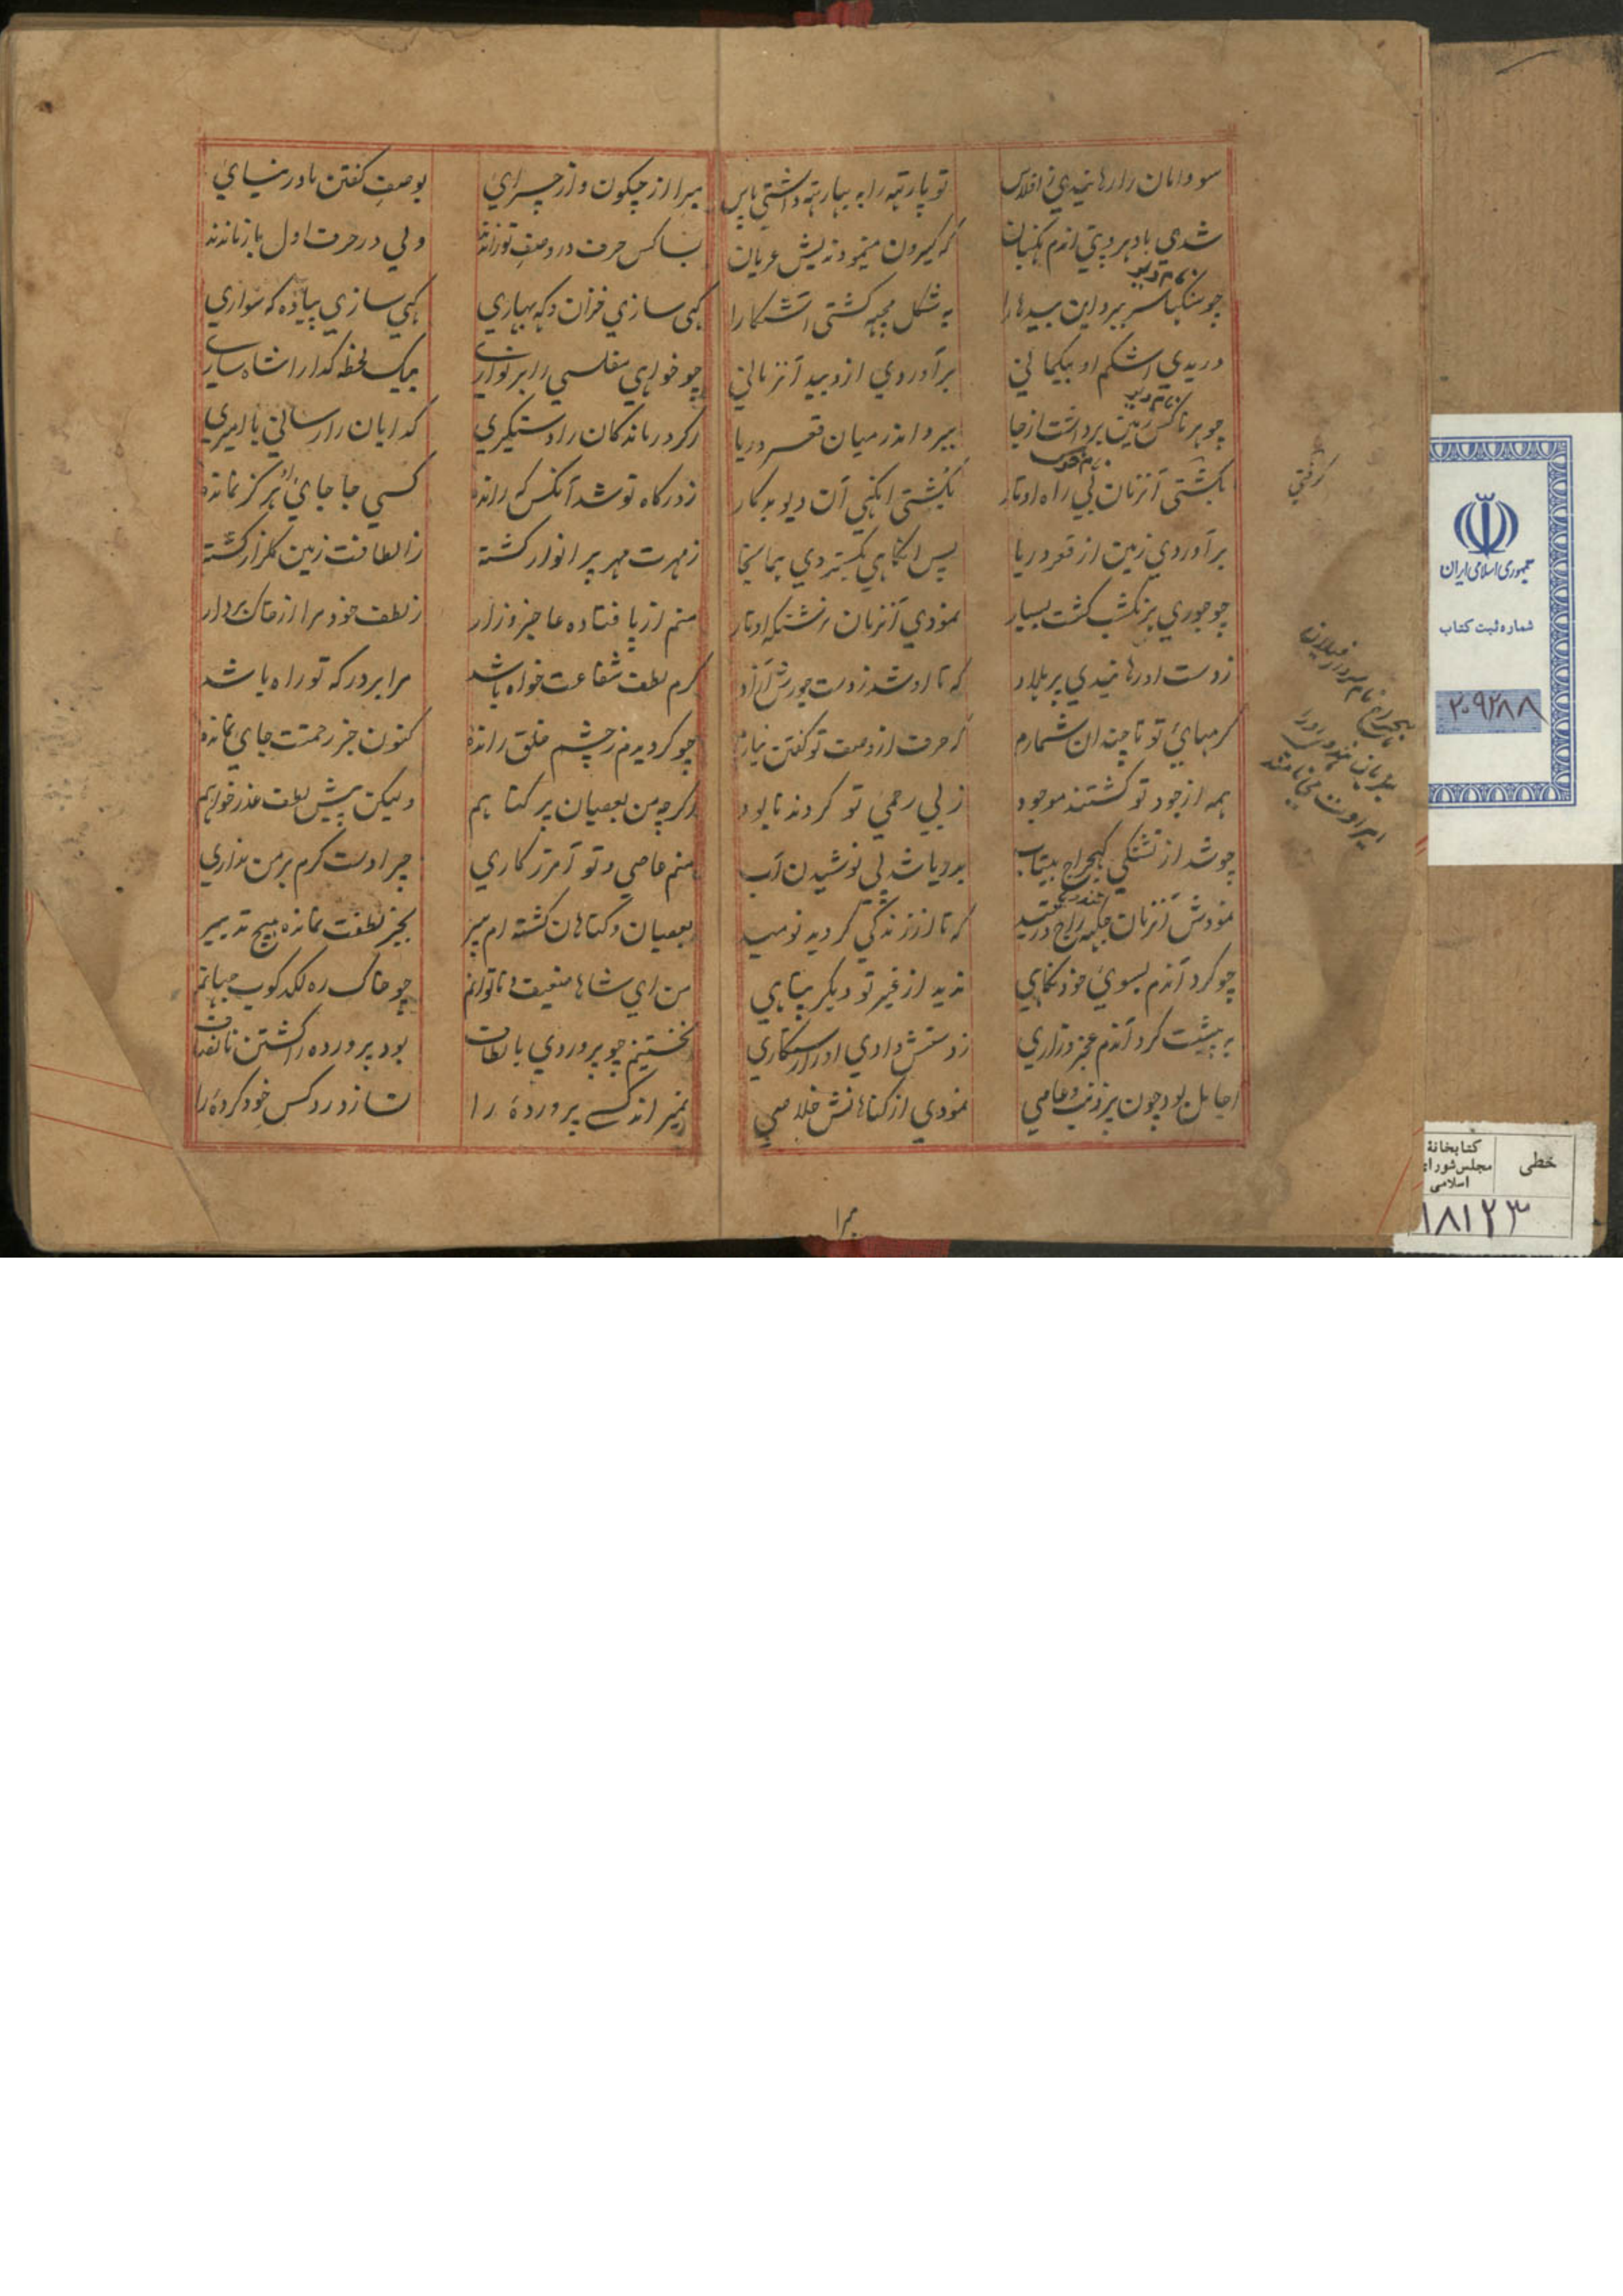 سودامان را رها نیدی ز افلاس
تو پارتهه را به بهارتهه داشتی پاس
شدی با دهروپتی آندم نگهبان
که کیرون مینمودندیش عریان
نام دیو
چو سنکهاسر ببرد این بیدها را
به شکل مچهه گشتی آشکارا
دریدی اشکم او بیگمانی
برآوردی ازو بید آنزمانی
نام دیو
چو هرناکس زمین برداشت از جا
ببرد اندر میان قعر دریا
بگشتی آنزمان بی راه اوتار
بکشتی آنگهی آن دیو بدکار
برآوردی زمین از قعر دریا
پس آنگاهی بگستردی همانجا
نمودی آنزمان نرسنگه اوتار
ز دست او رهانیدی پرهلاد
که تا او شد ز دست جورش آزاد
کرمهای تو تا چندان شمارم
که حرف از وصف تو گفتن نیارم
همه از جود تو گشتند موجود
ز بی رحمی تو گردند نابود
چو شد از تشنگی گجراج بیتاب
به دریا شد پی نوشیدن آب
که تا از زندگی گردید نومید
چو کرد آندم بسوی خود نگاهی
ندید از غیر تو دیگر پناهی
به پیشت کرد آندم عجز و زاری
ز دستش دادی او را رستگاری
اجامل بود چون پر ذنب و عاصی
نمودی از گناهانش خلاصی
گرفتی
مبرا
مبرا از چگون و از چرایی
بوصف گفتن ما در نیایی
بسا کس حرف در وصف تو راندند
ولی در حرف اول باز ماندند
گهی سازی خزان و گه بهاری
گهی سازی پیاده گه سواری
چو خواهی مفلسی را برنوازی
بیک لحظه گدا را شاه سازی
اگر درماندگان را دستگیری
گدایان را رسانی با امیری
ز درگاه تو شد آنکس که رانده
کسی جا جای او هرگز نمانده
ز مهرت مهر پر انوار گشته
ز الطافت زمین گلزار گشته
منم از پا فتاده عاجز و زار
ز لطف خود مرا از خاک بردار
کرم لطفت شفاعت خواه باشد
مرا بر درگه تو راه باشد
چو گردیدم ز چشم خلق رانده
کنون جز رحمتت جای نمانده
اگرچه من بعصیان پر گناهم
ولیکن پیش لطفت عذر خواهم
منم عاصی و تو آمرزگاری
چرا دست کرم بر من نداری
بعصیان و گناهان گشته‌ام پیر
بجز لطفت نمانده هیچ تدبیر
من ای شاها ضعیف و ناتوانم
چو خاک ره لگدکوب جهانم
نخستینم چو پروردی بالطاف
بود پرورده را کشتن نه انصاف
نمیراند کسی پرورده را
نسازد رد کس خود کرده را
جمهوری اسلامی ایران
شماره ثبت کتاب
۲۰۹۲۸۸
خطی
کتابخانهٔ
مجلس شورای
اسلامی
۱۸۱۲۳